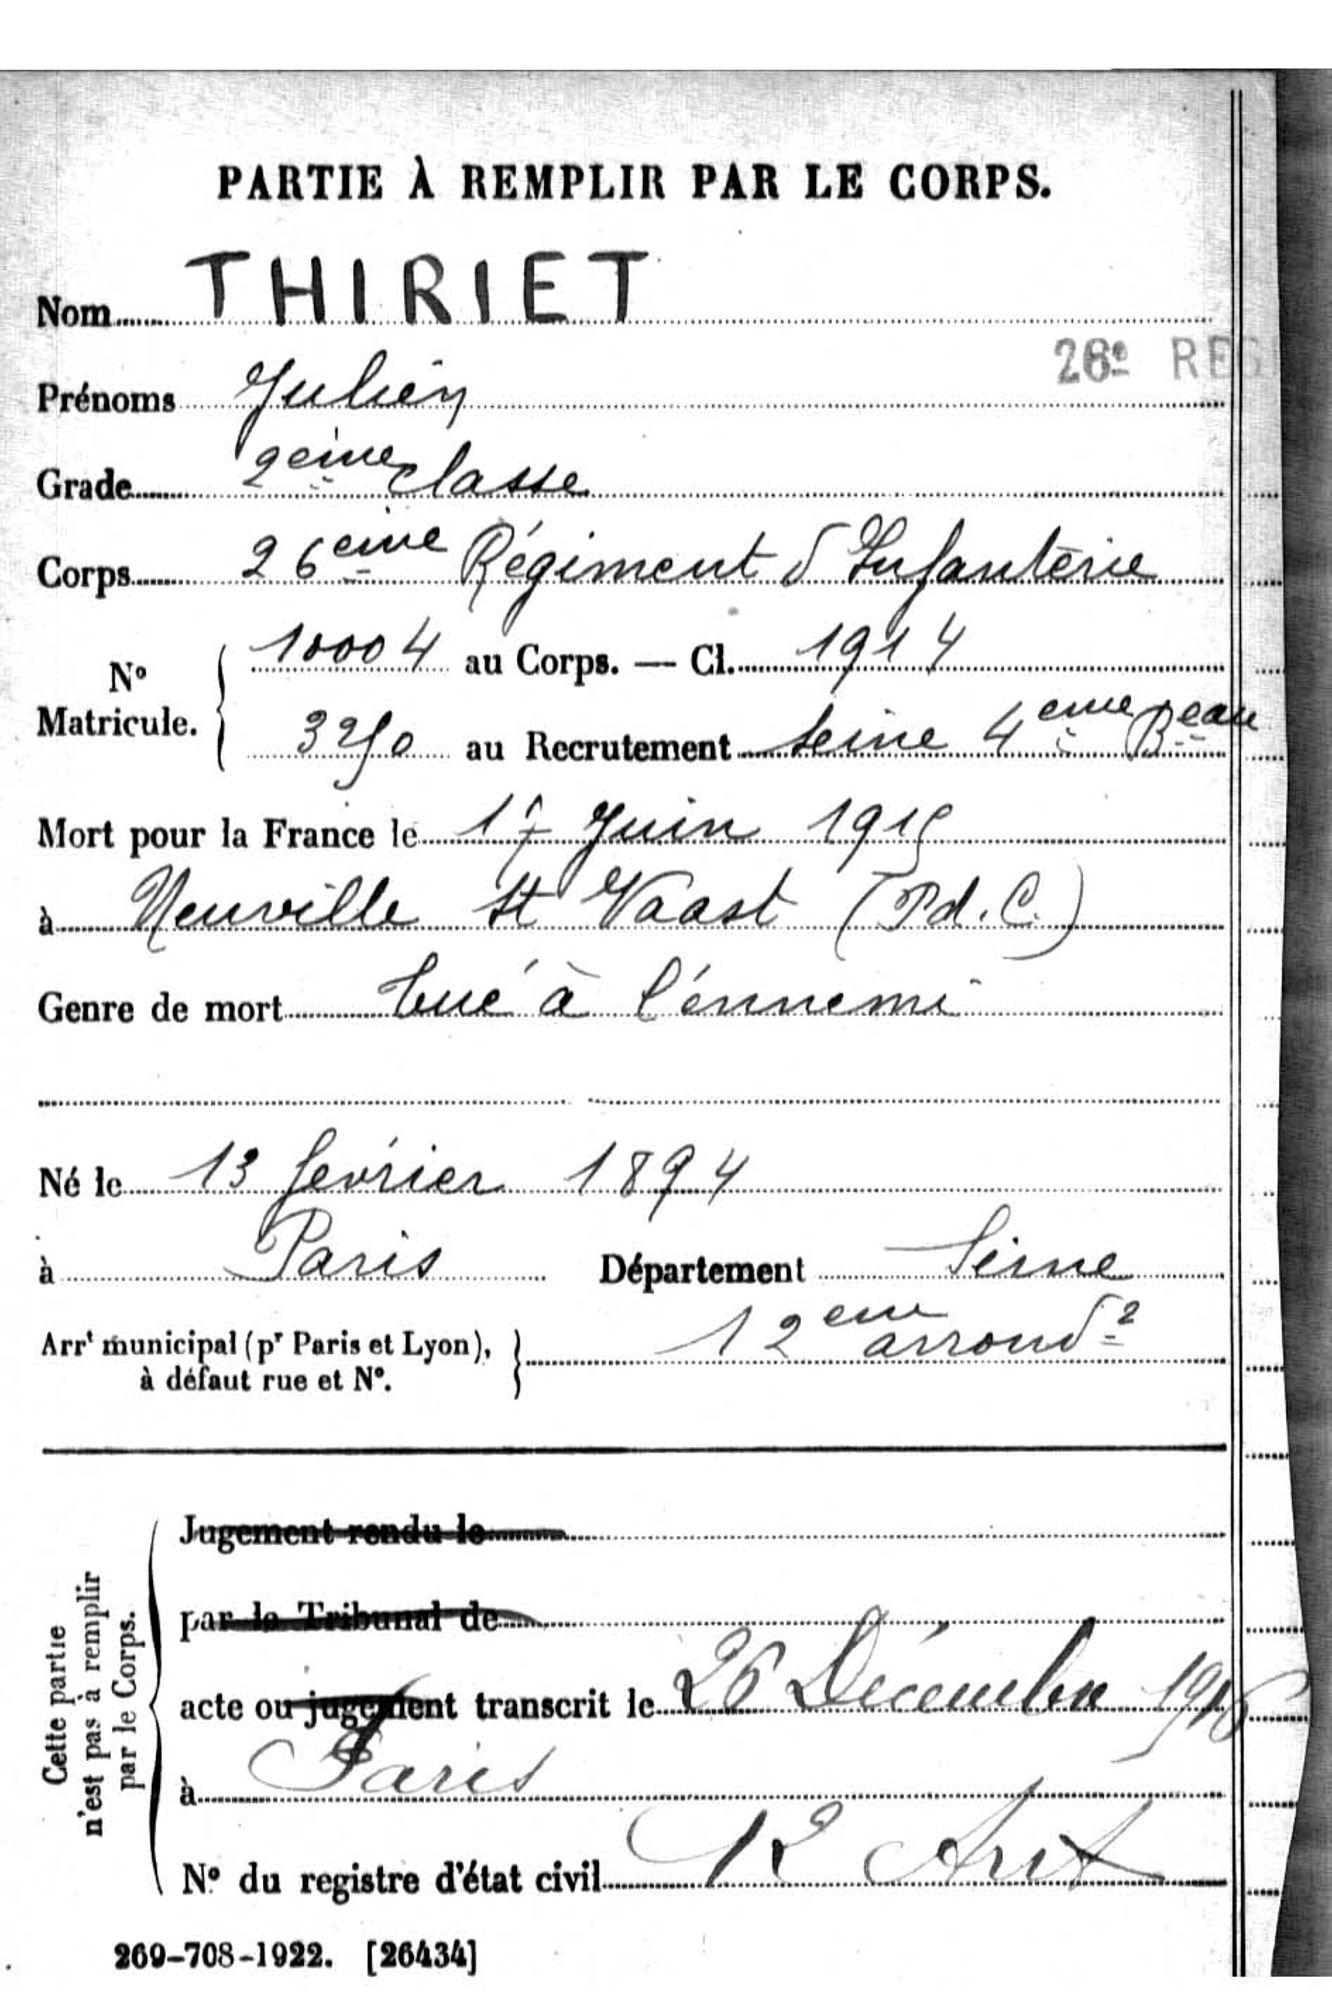 PARTIE À REMPLIR PAR LE CORPS.
Nom THIRIET
26e REG
Prénoms Julien
Grade 2eme classe
Corps 26eme Régiment d'Infanterie
N° Matricule. 10004 au Corps. — Cl. 1914
3250 au Recrutement Seine 4eme Beau
Mort pour la France le 17 Juin 1915
à Neuville St Vaast (P.d.C.)
Genre de mort tué à l'énnemi
Né le 13 février 1894
à Paris Département Seine
Arrt municipal (pr Paris et Lyon), à défaut rue et N°. 12eme arrondt
Cette partie n'est pas à remplir par le Corps.
Jugement rendu le
par le Tribunal de
acte ou jugement transcrit le 26 Décembre 1916
à Paris
N° du registre d'état civil 12 Arrt
269-708-1922. [26434]